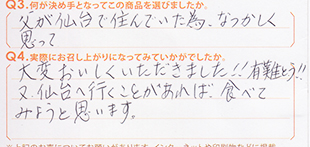 Q3.何が決め手となってこの商品を選びましたか。
父が仙台で住んでいた為、なつかしく
思って
Q4.実際にお召し上がりになってみていかがでしたか。
大変おいしくいただきました!!有難とう!!
又、仙台へ行くことがあれば、食べて
みようと思います。